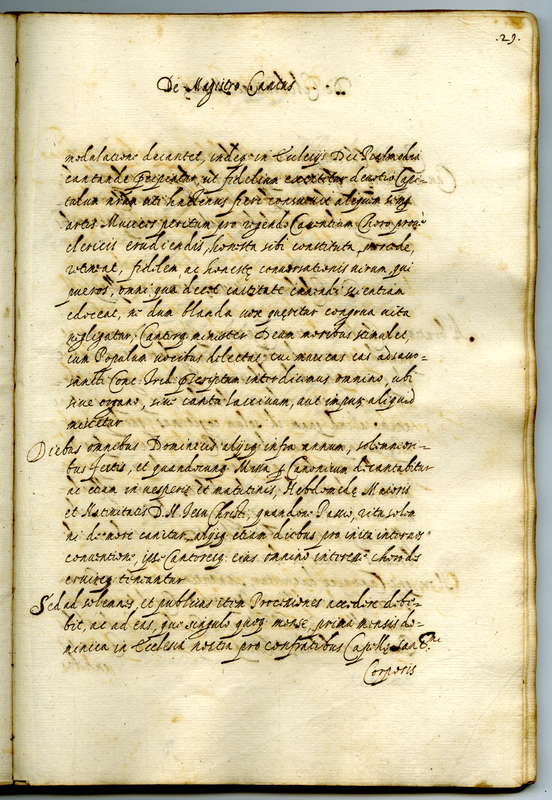 .29.
De Magistro Cantus
modulatione decantet, indeq; in Ecclesijs Dei Psalmodia
cantande percipiatur, ut fidelium excitetur deuotio Capi-
tulum nrum uti hactenus fieri consueuit aliquem semp
artis Musices peritum pro regendo Canentium Choro proq;
clericis erudiendis, honesta sibi constituta mercede,
retineat, fidelem ac honestę conuersationis uirum, qui
pueros, omni qua decet castitate canendi scientiam
edoceat, ne dum blanda uox queritur congrua uita
negligatur, Cantorq; minister Deum moribus stimulet,
cum Populum uocibus delectat; cui musicas eas ad
sancti Conc. Trid. pręscriptum interdicimus omnino, ubi
siue organo, siue cantu lasciuum, aut impurę aliquid
misceatur
Diebus omnibus Dominicis alijsq; infra annum, solemnio-
bus festis, et quandocunq; Missa p Canonicum decantabitur
ac etiam in uesperis et matutinis, Hebdomadę Maioris
et Natiuitatis D. N. Iesu Christi, quandone Passio, ritu solem
ni de more canitur, alijsq; etiam diebus pro inita inter nos
conuentione, ipse Cantoresq; eius omnino interesse choro de
seruireq; teneantur
Sed ad solemnes, et publicas etiam Processiones accedere debe-
bit, ac ad eas, que singulo quoq; mense, prima mensis do-
minica in Ecclesia nostra pro confratribus Capellę Sanct.me
Corporis